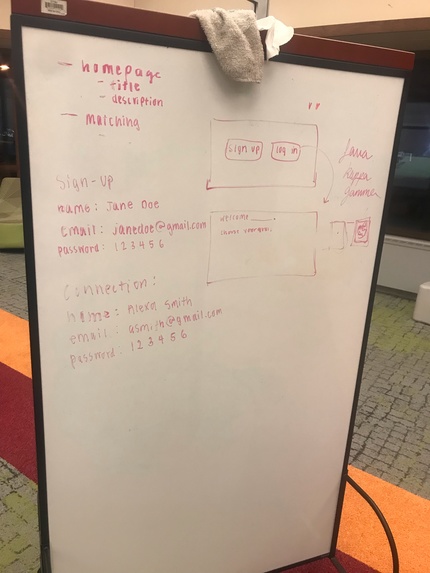 - homepage
- title
- description
- Matching
Sign-Up
name: Jane Doe
email: janedoe@gmail.com
password: 123456
Connection:
name: Alexa Smith
email: asmith@gmail.com
password: 123456
Sign up
log in
Welcome
choose
Kappa